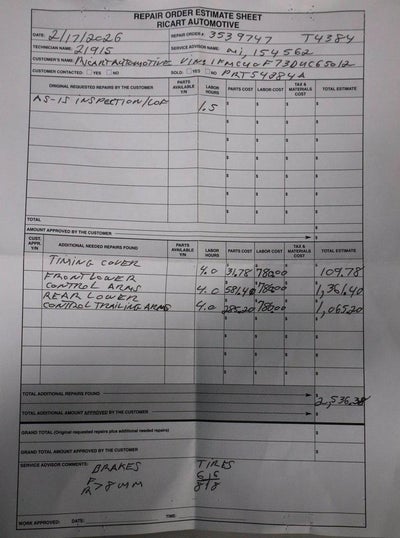 REPAIR ORDER ESTIMATE SHEET
RICART AUTOMOTIVE
DATE: 2/17/2026 REPAIR ORDER #: 3539747 T4384
TECHNICIAN NAME: 21915 SERVICE ADVISOR NAME: mi, 154562
CUSTOMER'S NAME: Ricart Automotive VIN: 1FMCU0F73DUC65012
CUSTOMER CONTACTED: YES NO SOLD: YES NO PRT54384A
ORIGINAL REQUESTED REPAIRS BY THE CUSTOMER PARTS AVAILABLE Y/N LABOR HOURS PARTS COST LABOR COST TAX & MATERIALS COST TOTAL ESTIMATE
AS-IS INSPECTION/LOF 1.5
TOTAL
AMOUNT APPROVED BY THE CUSTOMER
CUST. APPR. Y/N ADDITIONAL NEEDED REPAIRS FOUND PARTS AVAILABLE Y/N LABOR HOURS PARTS COST LABOR COST TAX & MATERIALS COST TOTAL ESTIMATE
TIMING COVER 4.0 31.78 780.00 109.78
FRONT LOWER
CONTROL ARMS 4.0 581.40 780.00 1,361.40
REAR LOWER
CONTROL TRAILING ARMS 4.0 285.20 780.00 1,065.20
TOTAL ADDITIONAL REPAIRS FOUND 2,536.38
TOTAL ADDITIONAL AMOUNT APPROVED BY THE CUSTOMER
GRAND TOTAL (Original requested repairs plus additional needed repairs)
GRAND TOTAL AMOUNT APPROVED BY THE CUSTOMER
SERVICE ADVISOR COMMENTS: BRAKES TIRES
F 6|6
R >8MM 8|8
WORK APPROVED: DATE: TIME: